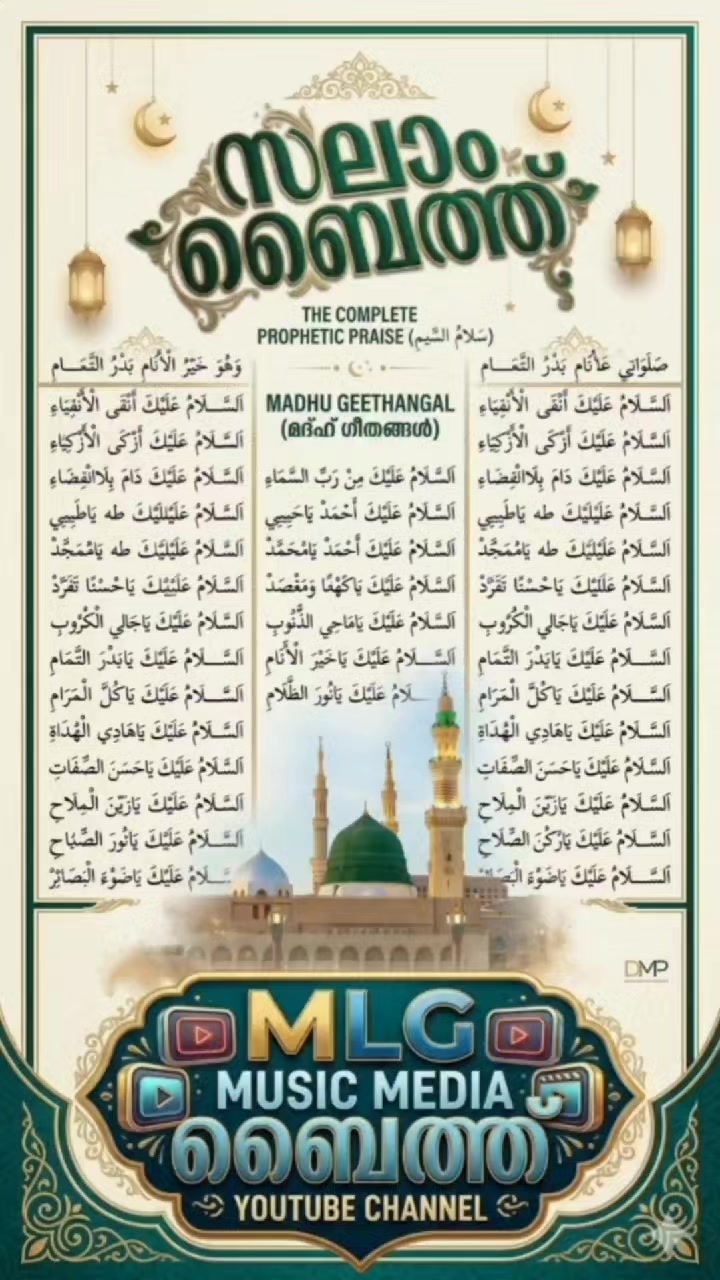 സലാം
ബൈത്ത്
THE COMPLETE
PROPHETIC PRAISE (سَلَامُ السَّيم)
صَلَوَاتِي عَأْنَام بَدْرُ التَّمَــام
اَلسَّــلَامُ عَلَيْكَ أَتْقَى الْأَتْقِيَاءِ
اَلسَّــلَامُ عَلَيْكَ أَزْكَى الْأَزْكِيَاءِ
اَلسَّــلَامُ عَلَيْكَ دَامَ بِلَاانْفِضَاءِ
اَلسَّــلَامُ عَلَيْلَيْكَ طه يَاطَبِيبِي
اَلسَّــلَامُ عَلَيْلَيْكَ طه يَامُمَجَّدْ
اَلسَّــلَامُ عَلَلَيْكَ يَاحُسْنًا تَفَرَّدْ
اَلسَّــلَامُ عَلَيْكَ يَاجَالِي الْكُرُوبِ
اَلسَّــلَامُ عَلَيْكَ يَابَدْرَ التَّمَامِ
اَلسَّــلَامُ عَلَيْكَ يَاكُلَّ الْمَرَامِ
اَلسَّــلَامُ عَلَيْكَ يَاهَادِي الْهُدَاةِ
اَلسَّــلَامُ عَلَيْكَ يَاحَسَنَ الصِّفَاتِ
اَلسَّــلَامُ عَلَيْكَ يَازَيْنَ الْمِلَاحِ
اَلسَّــلَامُ عَلَيْكَ يَارُكْنَ الصَّلَاحِ
اَلسَّــلَامُ عَلَيْكَ يَاضَوْءَ
MADHU GEETHANGAL
(മദ്ഹ് ഗീതങ്ങൾ)
اَلسَّــلَامُ عَلَيْكَ مِنْ رَبِّ السَّمَاءِ
اَلسَّــلَامُ عَلَيْكَ أَحْمَدْ يَاحَبِيبِي
اَلسَّــلَامُ عَلَيْكَ أَحْمَدْ يَامُحَمَّدْ
اَلسَّــلَامُ عَلَيْكَ يَاكَهْفًا وَمَقْصَدْ
اَلسَّــلَامُ عَلَيْكَ يَامَاحِي الذُّنُوبِ
اَلسَّــلَامُ عَلَيْكَ يَاخَيْرَ الْأَنَامِ
ـلَامُ عَلَيْكَ يَانُورَ الظَّلَامِ
وَهُوَ خَيْرُ الْأَنَام بَدْرُ التَّمَــام
اَلسَّــلَامُ عَلَيْكَ أَتْقَى الْأَتْقِيَاءِ
اَلسَّــلَامُ عَلَيْكَ أَزْكَى الْأَزْكِيَاءِ
اَلسَّــلَامُ عَلَيْكَ دَامَ بِلَاانْفِضَاءِ
اَلسَّــلَامُ عَلَيْلَيْكَ طه يَاطَبِيبِي
اَلسَّــلَامُ عَلَيْلَيْكَ طه يَامُمَجَّدْ
اَلسَّــلَامُ عَلَيْيْكَ يَاحُسْنًا تَفَرَّدْ
اَلسَّــلَامُ عَلَيْكَ يَاجَالِي الْكُرُوبِ
اَلسَّــلَامُ عَلَيْكَ يَابَدْرَ التَّمَامِ
اَلسَّــلَامُ عَلَيْكَ يَاكُلَّ الْمَرَامِ
اَلسَّــلَامُ عَلَيْكَ يَاهَادِي الْهُدَاةِ
اَلسَّــلَامُ عَلَيْكَ يَاحَسَنَ الصِّفَاتِ
اَلسَّــلَامُ عَلَيْكَ يَازَيْنَ الْمِلَاحِ
اَلسَّــلَامُ عَلَيْكَ يَانُورَ الصَّبَاحِ
ـلَامُ عَلَيْكَ يَاضَوْءَ الْبَصَائِرْ
DMP
MLG
MUSIC MEDIA
ബൈത്ത്
YOUTUBE CHANNEL